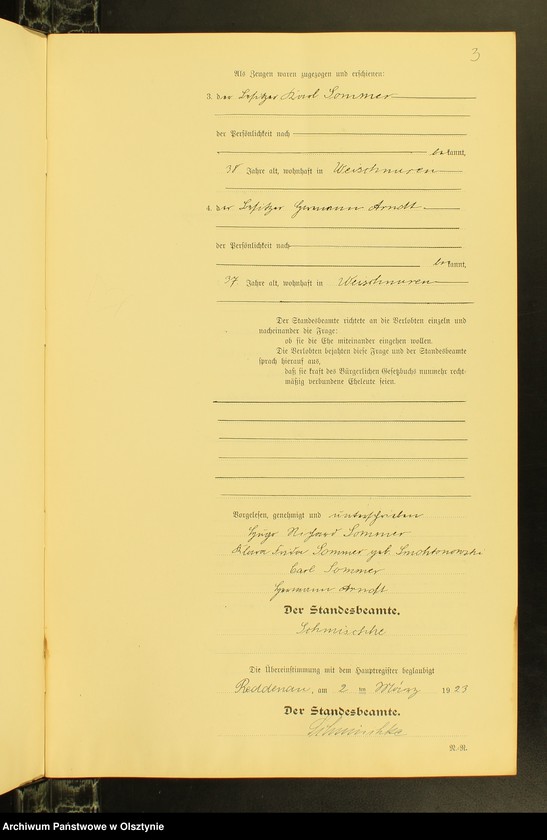 3
Als Zeugen waren zugezogen und erschienen:
3. der Besitzer Karl Sommer
der Persönlichkeit nach
bekannt,
38 Jahre alt, wohnhaft in Weischnuren
4. der Besitzer Hermann Arndt
der Persönlichkeit nach
bekannt,
37 Jahre alt, wohnhaft in Weischnuren
Der Standesbeamte richtete an die Verlobten einzeln und
nacheinander die Frage:
ob sie die Ehe miteinander eingehen wollen.
Die Verlobten bejahten diese Frage und der Standesbeamte
sprach hierauf aus,
daß sie kraft des Bürgerlichen Gesetzbuchs nunmehr recht-
mäßig verbundene Eheleute seien.
Vorgelesen, genehmigt und unterschrieben
Hugo Richard Sommer
Klara Frida Sommer geb.
Carl Sommer
Hermann Arndt
Der Standesbeamte.
Schmischke
Die Übereinstimmung mit dem Hauptregister beglaubigt
Reddenau, am 2 ten März 1923
Der Standesbeamte.
Schmischke
N.-R.
Archiwum Państwowe w Olsztynie